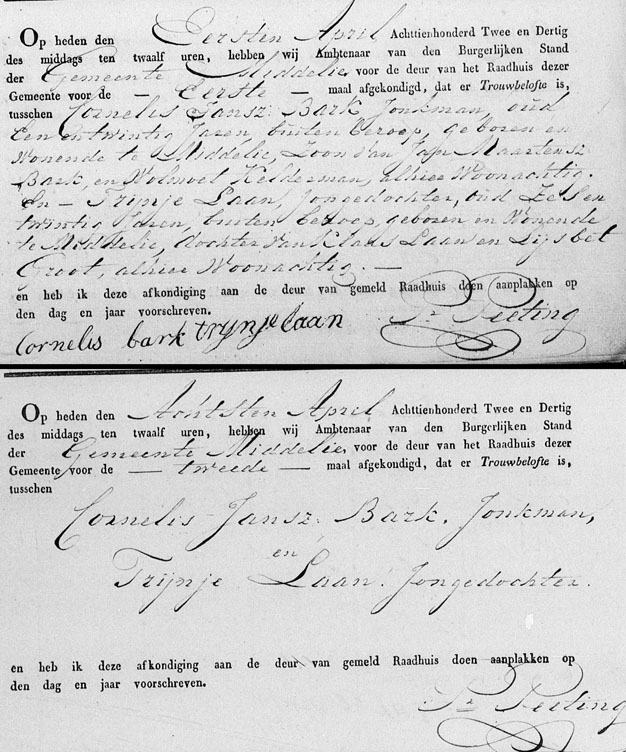 Op heden den Eersten April Achttienhonderd Twee en Dertig
des middags ten twaalf uren, hebben wij Ambtenaar van den Burgerlijken Stand
der Gemeente Middelie voor de deur van het Raadhuis dezer
Gemeente voor de — Eerste — maal afgekondigd, dat er Trouwbelofte is,
tusschen Cornelis Jansz: Bark Jonkman, oud
Een entwintig Jaren, buiten beroep, geboren en
Wonende te Middelie, Zoon van Jan Maartensz
Bark, en Wolmoet Kelderman, alhier Woonachtig.
En – Trijnje Laan, Jongedochter, oud Zes en
twintig Jaren, buiten beroep, geboren en Wonende
te Middelie, dochter van Klaas Laan en Lijsbet
Groot, alhier Woonachtig. —
en heb ik deze afkondiging aan de deur van gemeld Raadhuis doen aanplakken op
den dag en jaar voorschreven.
Cornelis bark trynje laan
Pr Peeting
Op heden den Achtsten April Achttienhonderd Twee en Dertig
des middags ten twaalf uren, hebben wij Ambtenaar van den Burgerlijken Stand
der Gemeente Middelie voor de deur van het Raadhuis dezer
Gemeente voor de — tweede — maal afgekondigd, dat er Trouwbelofte is,
tusschen
Cornelis Jansz: Bark, Jonkman,
en
Trijnje Laan. Jongedochter.
en heb ik deze afkondiging aan de deur van gemeld Raadhuis doen aanplakken op
den dag en jaar voorschreven.
Pr Peeting